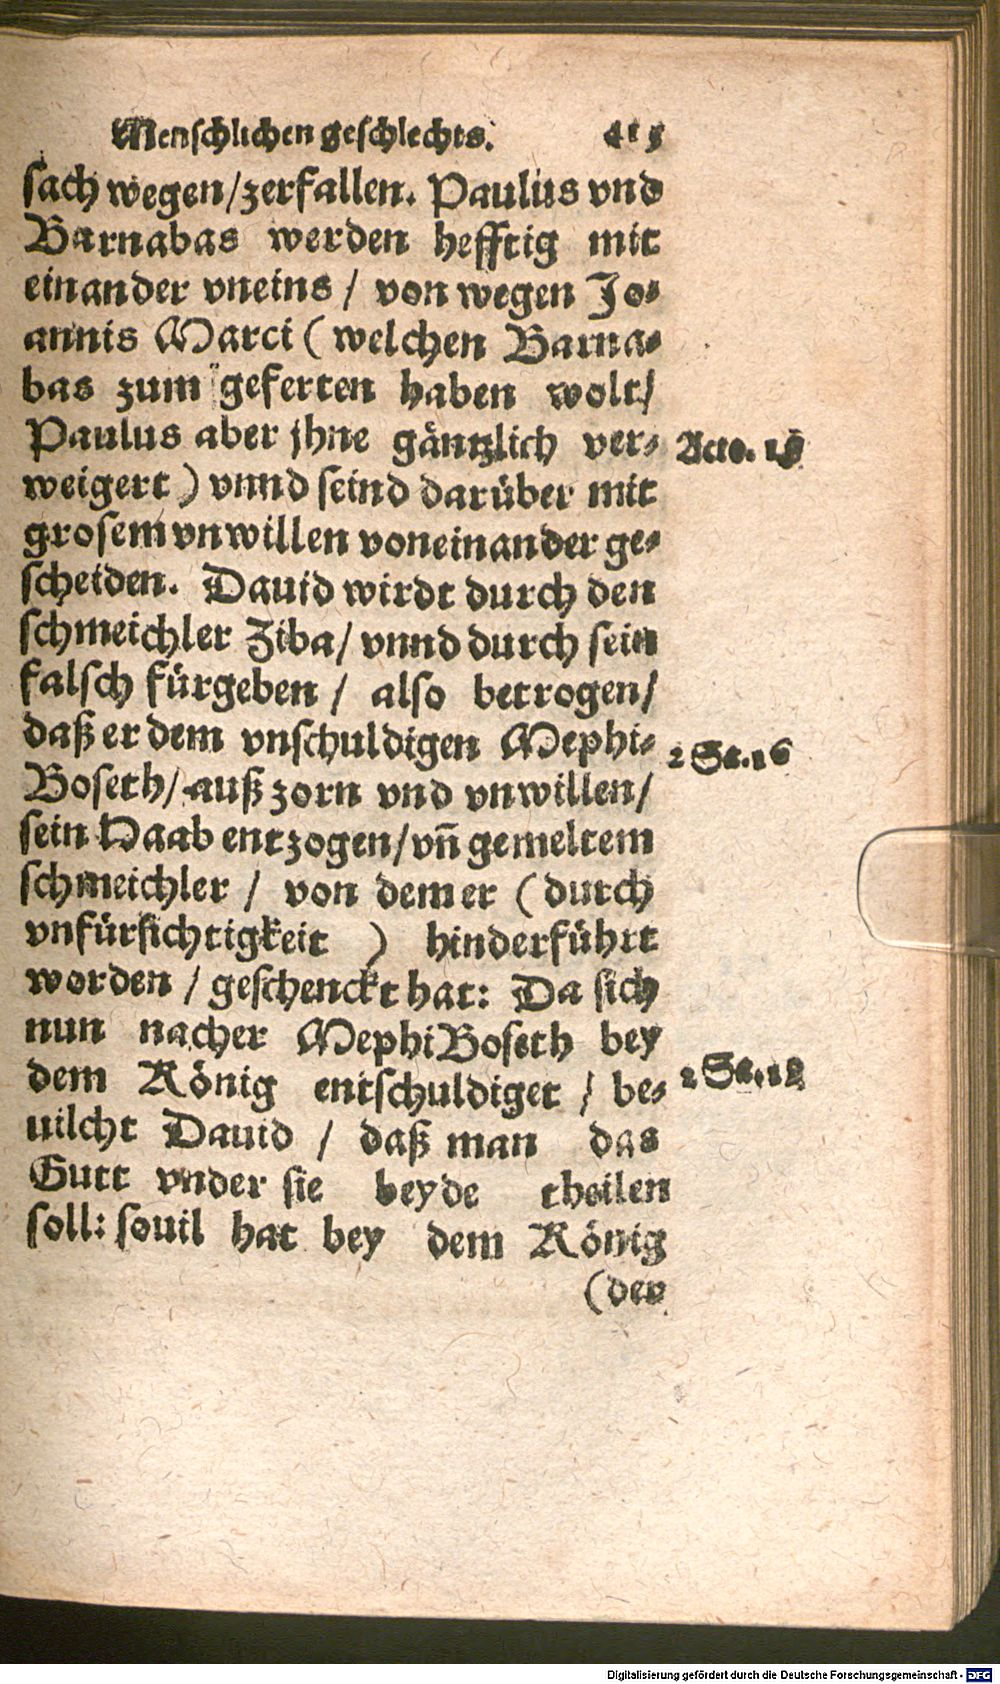 Menschlichen geschlechts. 415
sach wegen/zerfallen. Paulus vnd
Barnabas werden hefftig mit
einander vneins / von wegen Jo⸗
annis Marci ( welchen Barna⸗
bas zum geferten haben wolt/
Paulus aber jhne gäntzlich ver⸗
Acto. 15
weigert ) vnnd seind darüber mit
grosem vnwillen voneinander ge⸗
scheiden. Dauid wirdt durch den
schmeichler Ziba/ vnnd durch sein
falsch fürgeben / also betrogen/
daß er dem vnschuldigen Mephi⸗
2 Sa. 16
Boseth/ auß zorn vnd vnwillen/
sein Haab entzogen/vñ gemeltem
schmeichler / von dem er ( durch
vnfürsichtigkeit ) hinderführt
worden / geschenckt hat: Da sich
nun nacher MephiBoseth bey
dem König entschuldiget / be⸗
2 Sa. 19
uilcht Dauid / daß man das
Gutt vnder sie beyde theilen
soll: souil hat bey dem König
(der
Digitalisierung gefördert durch die Deutsche Forschungsgemeinschaft - DFG